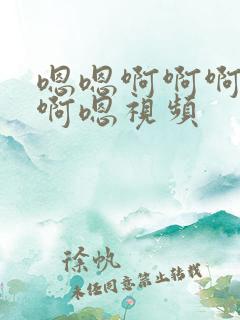 嗯嗯啊啊啊
啊嗯视频
徐帆
未经同意禁止转载